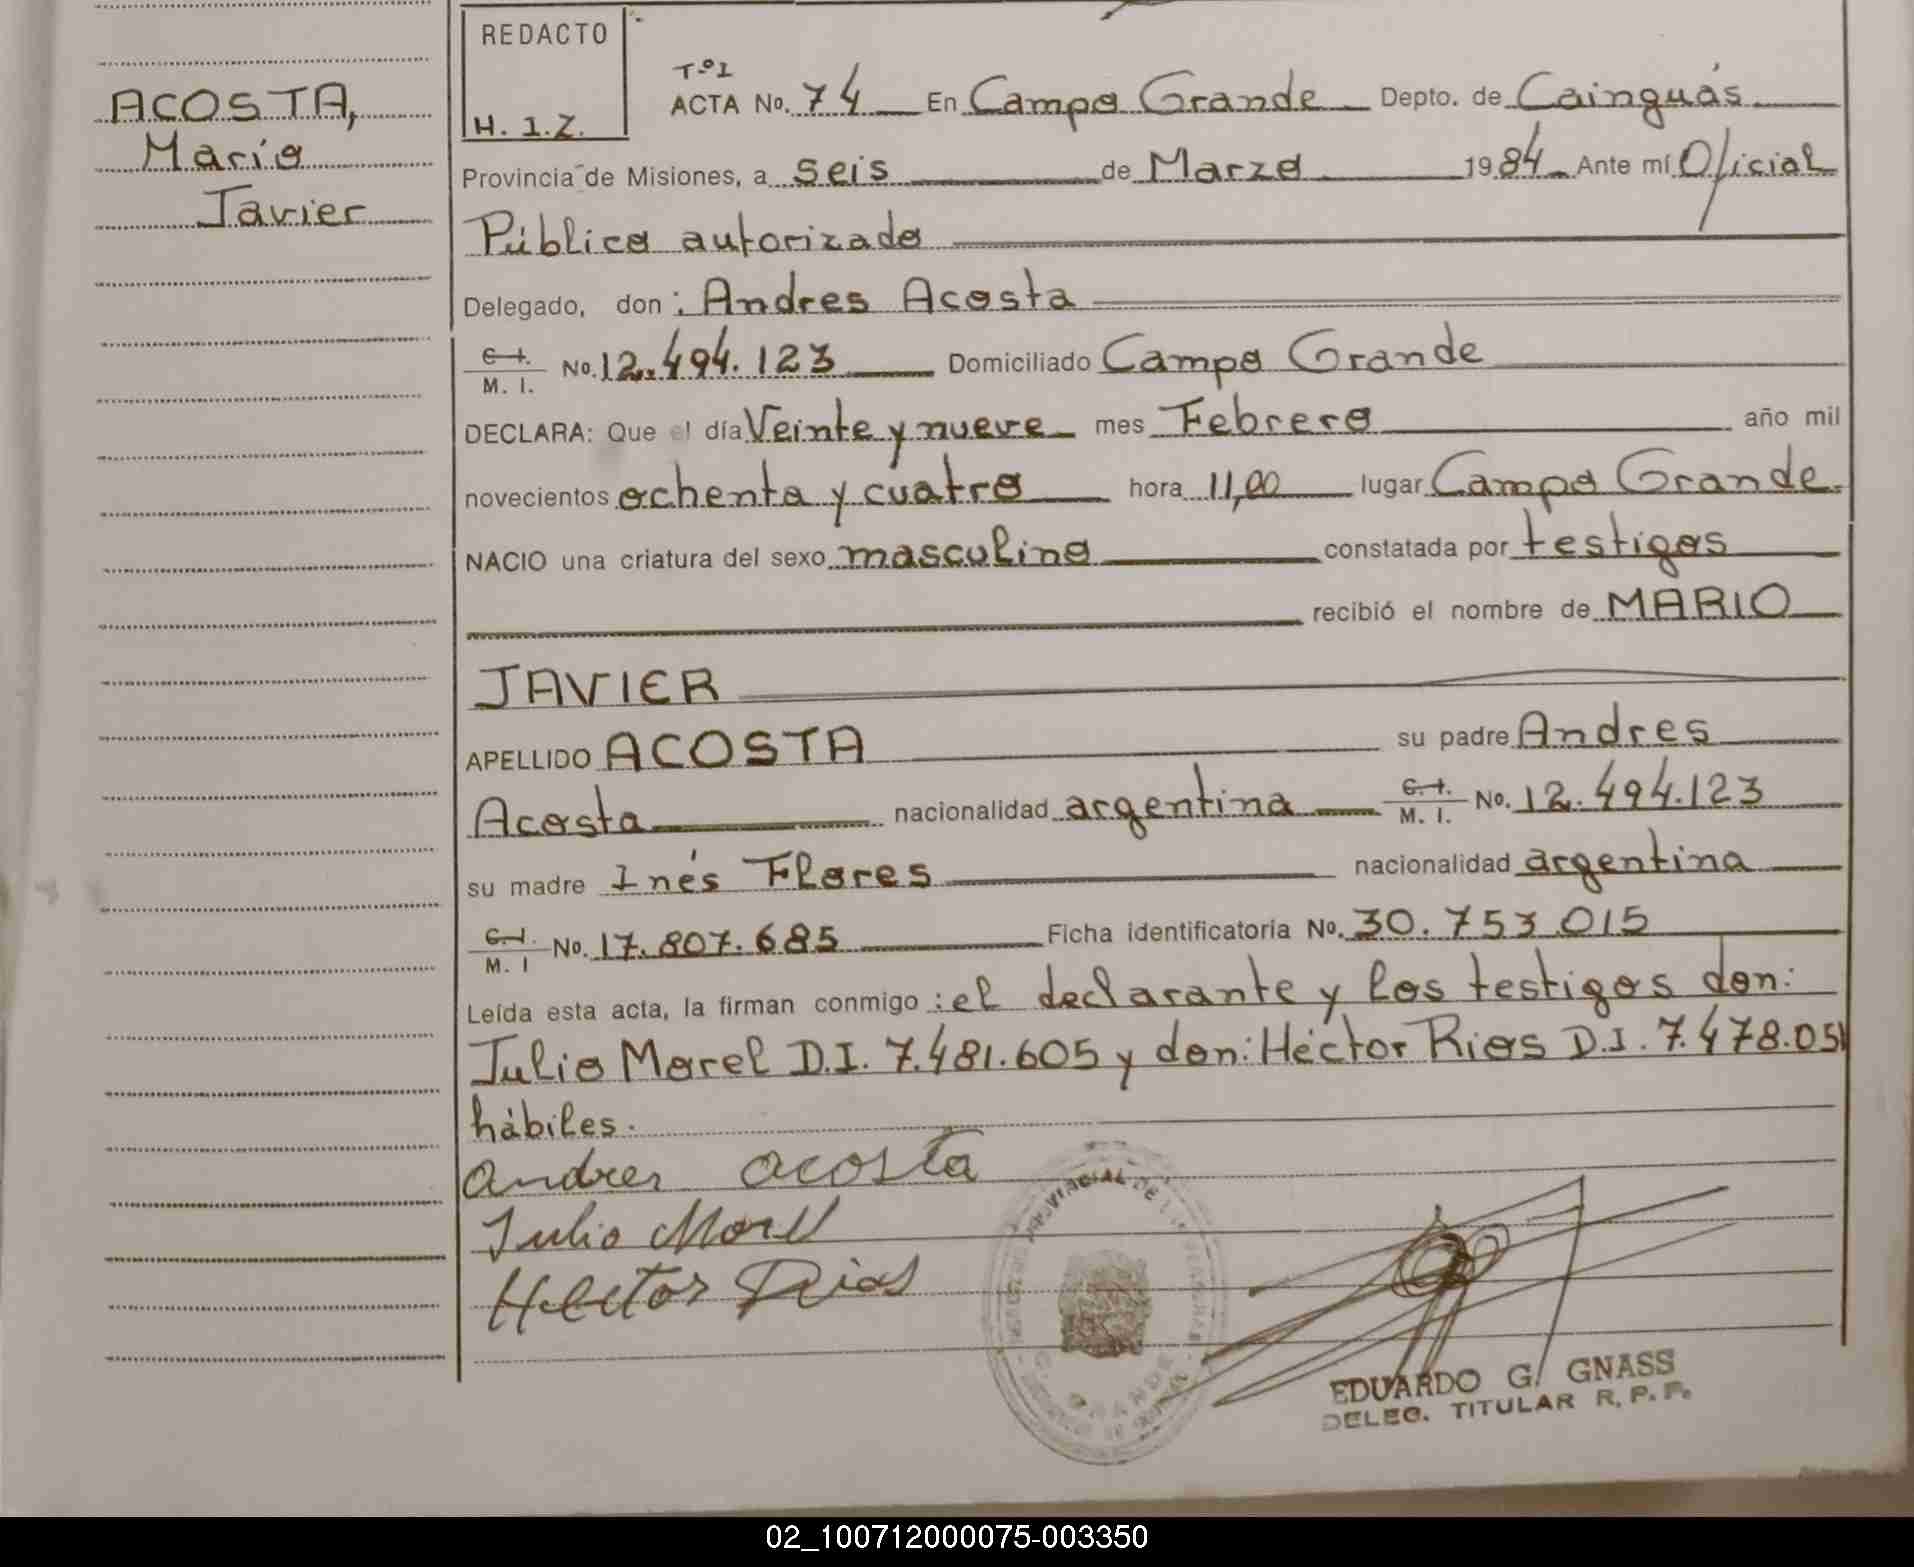 ACOSTA,
Mario
Javier
REDACTO
H. I. Z.
Tº I
ACTA No. 74 En Campo Grande Depto. de Cainguás
Provincia de Misiones, a seis de Marzo 1984 Ante mí Oficial
Público autorizado
Delegado, don: Andres Acosta
C.I. M. I. No. 12.494.123 Domiciliado Campo Grande
DECLARA: Que el día Veinte y nueve mes Febrero año mil
novecientos ochenta y cuatro hora 11,00 lugar Campo Grande.
NACIO una criatura del sexo masculino constatada por testigos
recibió el nombre de MARIO
JAVIER
APELLIDO ACOSTA su padre Andres
Acosta nacionalidad argentina C.I. M. I. No. 12.494.123
su madre Inés Flores nacionalidad argentina
C.I. M. I No. 17.807.685 Ficha identificatoria No. 30.753.015
Leída esta acta, la firman conmigo: el declarante y los testigos don:
Julio Morel D.I. 7.481.605 y don: Héctor Rios D.I. 7.478.051
hábiles.
Andres Acosta
Julio Morel
Hector Rios
PROVINCIAL DE
GRANDE
EDUARDO G. GNASS
DELEG. TITULAR R. P. P.
02_100712000075-003350